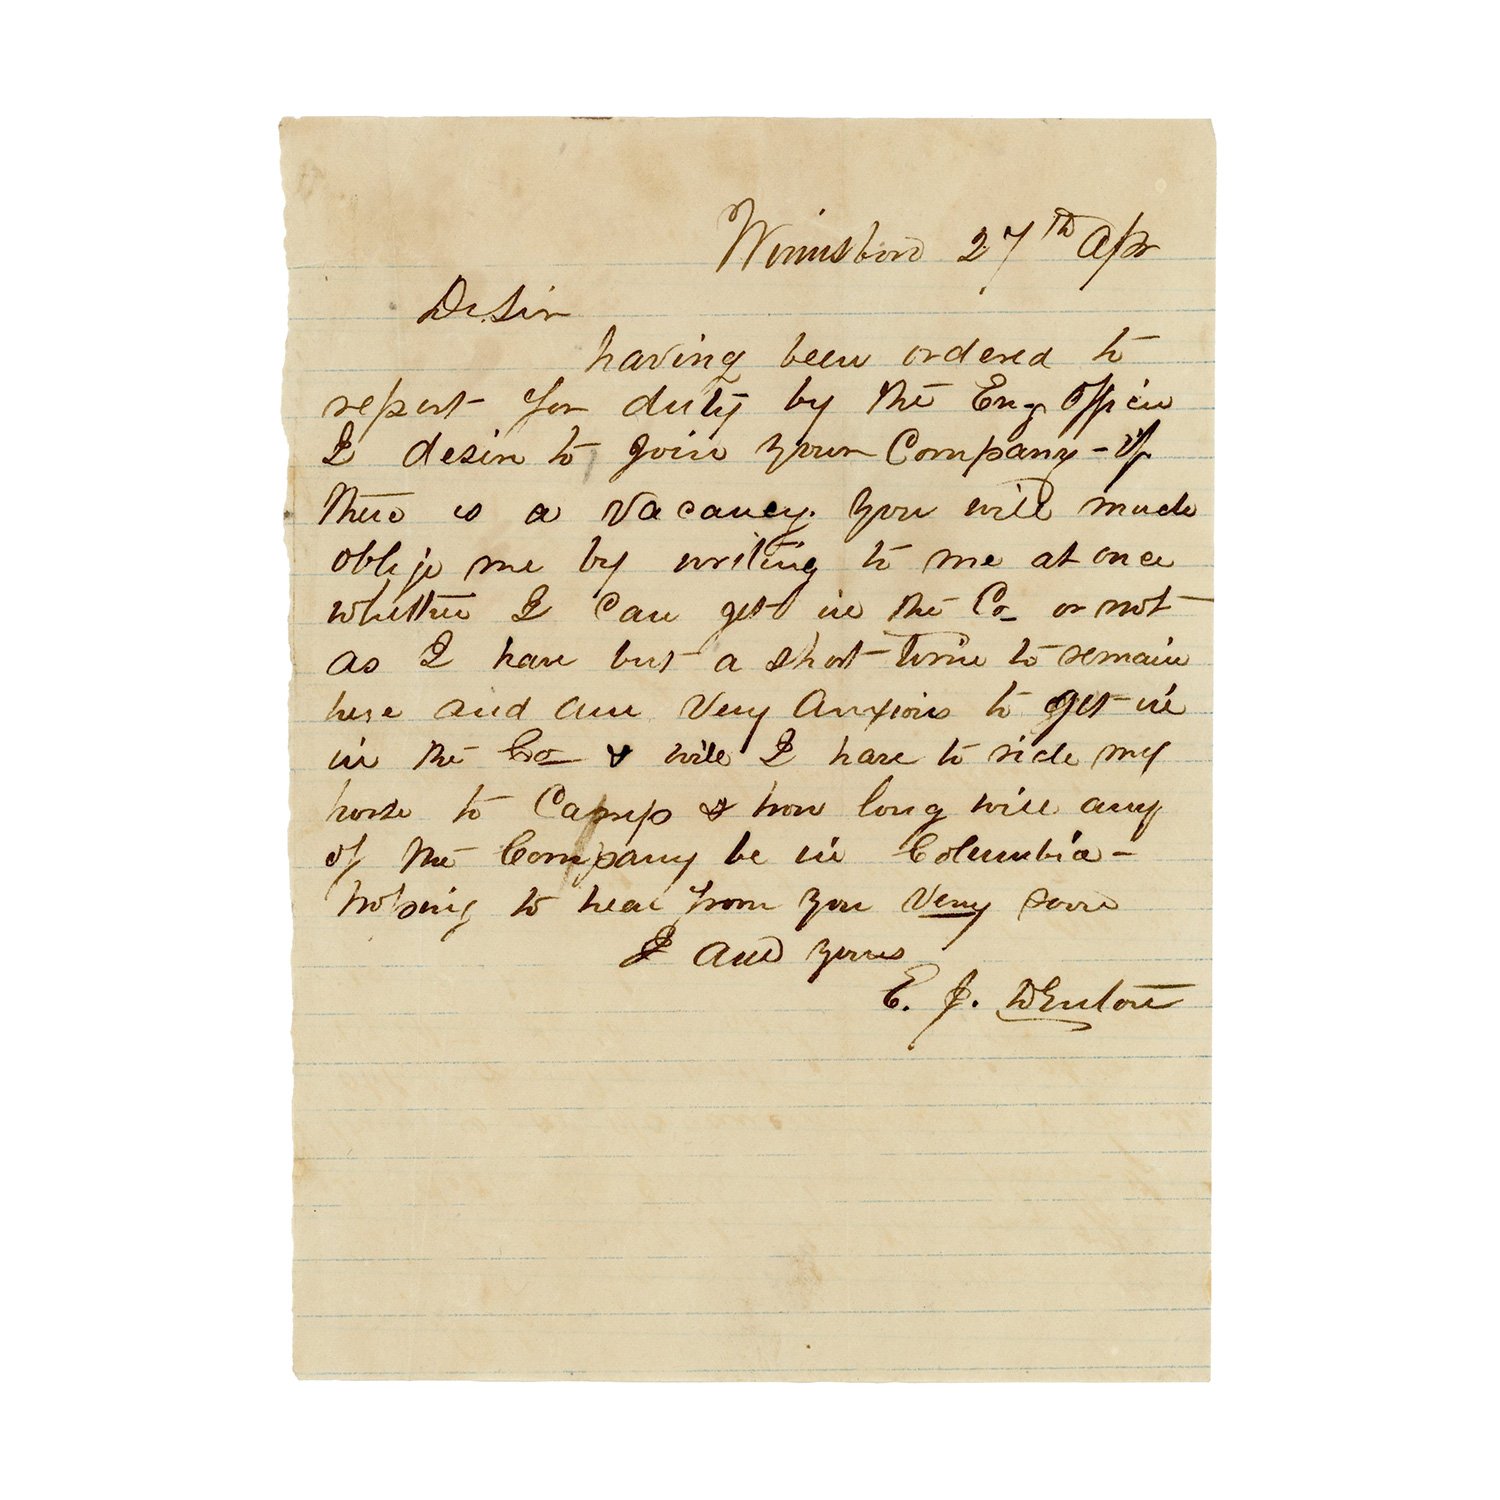 Winnsboro 27th Apr
Dr. Sir
having been ordered to
report for duty by the Eng officer
I desire to join your Company - if
there is a vacancy. You will much
oblige me by writing to me at once
whether I can get in the Co or not
as I have but a short time to remain
here and am Very Anxious to get in
in the Co & will I have to ride my
horse to Camp & how long will any
of the Company be in Columbia -
hoping to hear from you Very soon
I am yours
E. J.